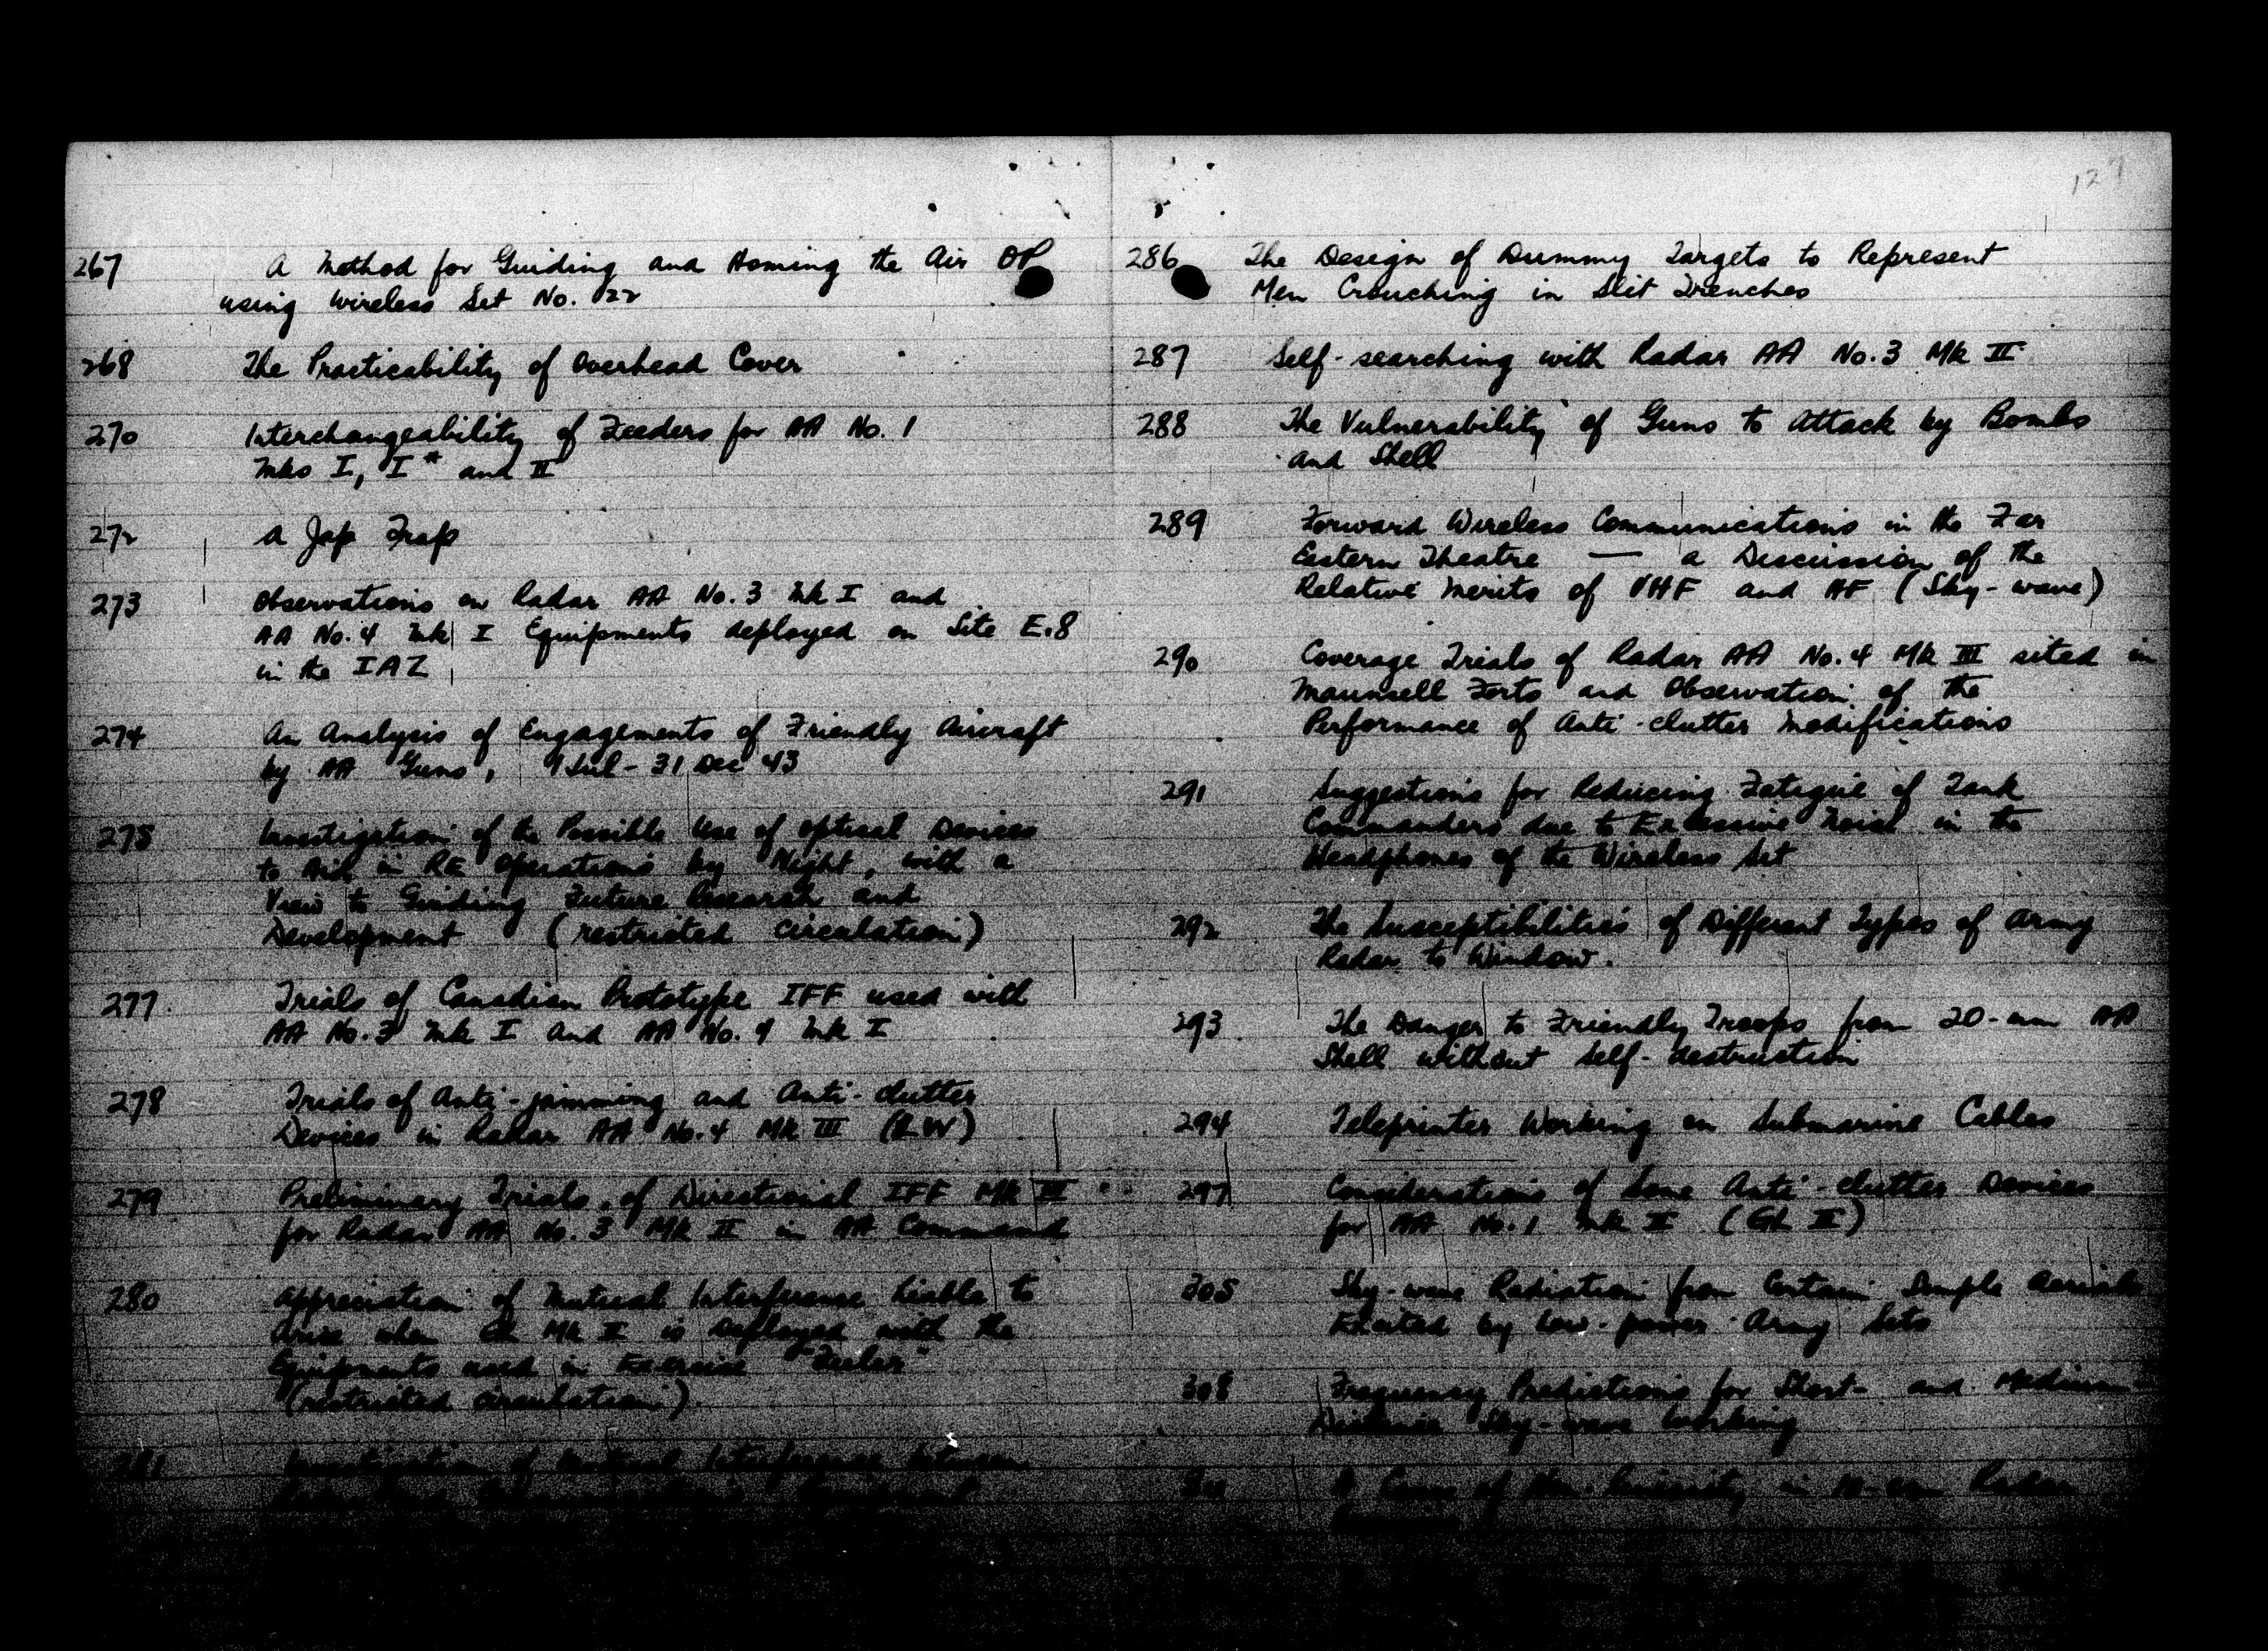 127
267 A Method for Guiding and Homing the Air OP
using Wireless Set No. 22
268 The Practicability of Overhead Cover
270 Interchangeability of Feeders for AA No. 1
Mks I, I* and II
272 A Jap Trap
273 Observations on Radar AA No. 3 Mk I and
AA No. 4 Mk I Equipments deployed on Site E.8
in the IAZ
274 An Analysis of Engagements of Friendly Aircraft
by AA Guns, 1 Jul - 31 Dec 43
275 Investigation of the Possible Use of Optical Devices
to Aid in RE Operations by Night, with a
View to Guiding Future Research and
Development (restricted circulation)
277 Trials of Canadian Prototype IFF used with
AA No. 3 Mk I and AA No. 4 Mk I
278 Trials of Anti-jamming and Anti-clutter
Devices in Radar AA No. 4 Mk III (LW)
279 Preliminary Trials of Directional IFF Mk III
for Radar AA No. 3 Mk II in AA Command
280 Appreciation of Mutual Interference Liable to
Arise when GL Mk II is deployed with the
Equipments used in Exercise "Feeler"
(restricted circulation)
281 Investigation of Mutual Interference between
286 The Design of Dummy Targets to Represent
Men Crouching in Slit Trenches
287 Self-searching with Radar AA No. 3 Mk II
288 The Vulnerability of Guns to Attack by Bombs
and Shell
289 Forward Wireless Communications in the Far
Eastern Theatre — a Discussion of the
Relative Merits of VHF and HF (Sky-wave)
290 Coverage Trials of Radar AA No. 4 Mk III sited in
Maunsell Forts and Observation of the
Performance of Anti-clutter Modifications
291 Suggestions for Reducing Fatigue of Tank
Commanders due to Excessive Noise in the
Headphones of the Wireless Set
292 The Susceptibilities of Different Types of Army
Radar to Window.
293 The Danger to Friendly Troops from 20-mm AA
Shell without Self-destruction
294 Teleprinter Working on Submarine Cables
297 Considerations of Some Anti-clutter Devices
for AA No. 1 Mk II (GL II)
305 Sky-wave Radiation from Certain Simple Aerials
Excited by Low-power Army Sets
308 Frequency Predictions for Short- and Medium-
Distance Sky-wave Working
A Cause of Non-linearity in 10-cm Radar